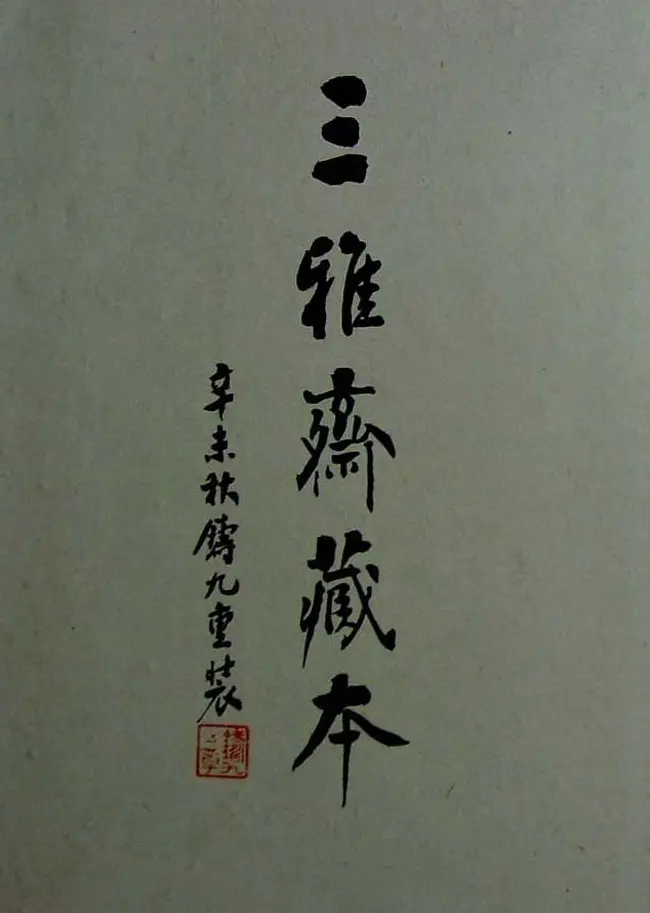 三雅齋藏本
辛未秋鑄九重裝